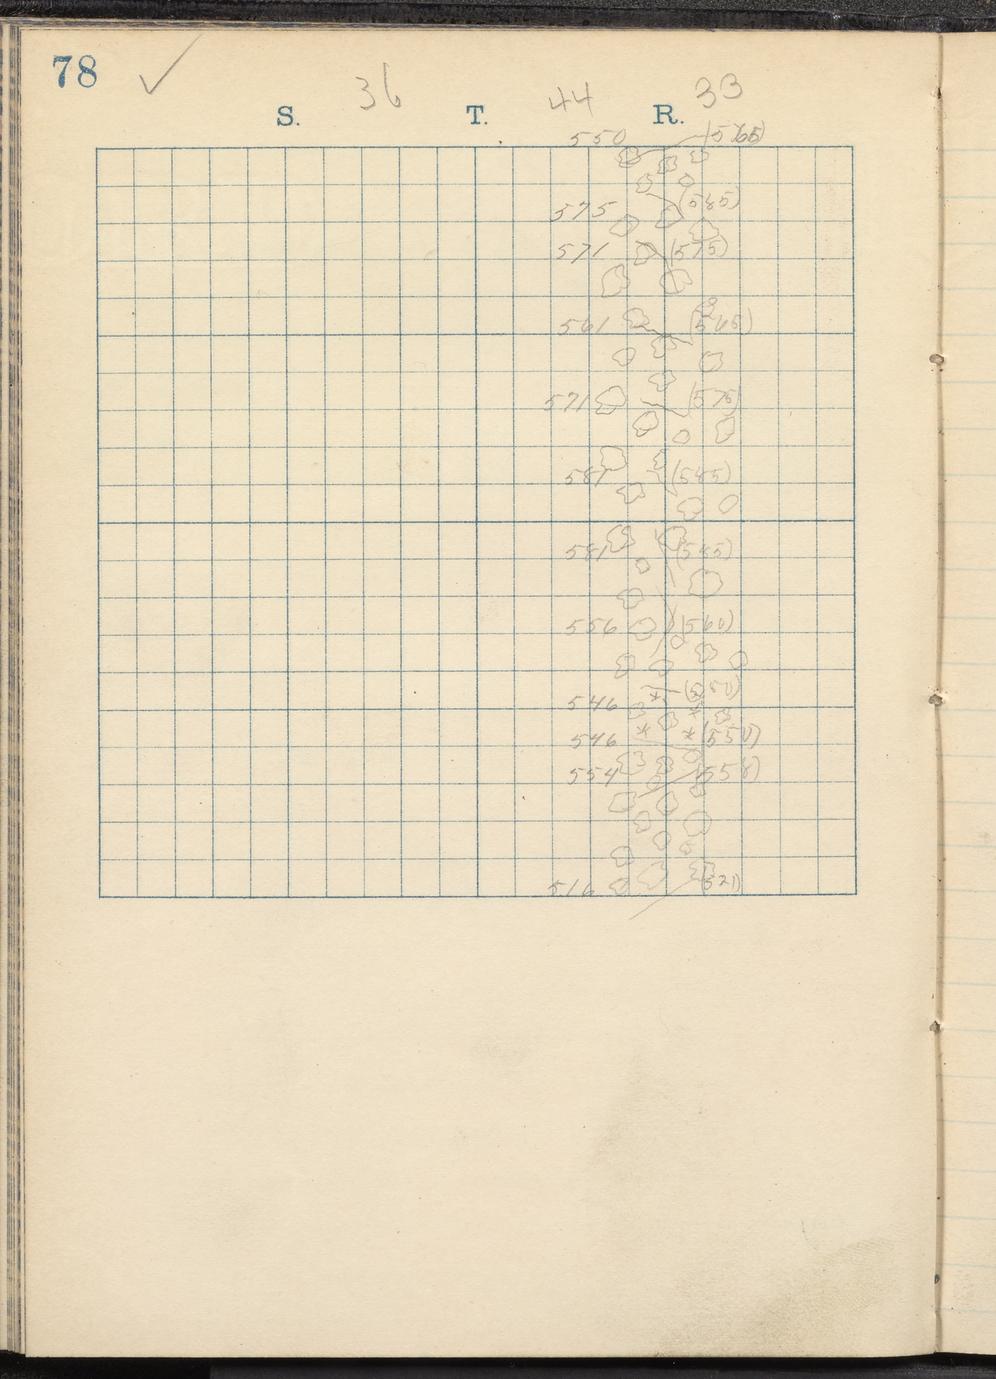 78 ✓
36 44 33
S. T. R.
550
575 (585)
571 (575)
561 (565)
571 (575)
581 (585)
581 (585)
556 (560)
546 (550)
546 (550)
554 (558)
516 (521)